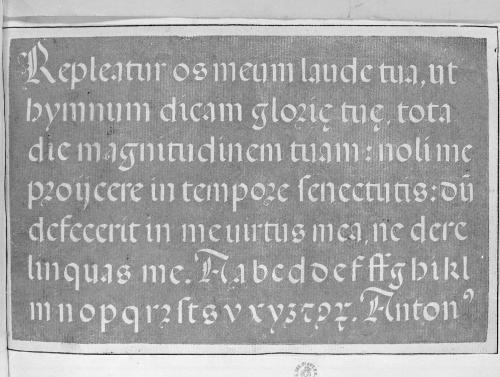 Repleatur os meum laude tua, ut
hymnum dicam glorię tuę, tota
die magnitudinem tuam: noli me
proijcere in tempore ſenectutis: dū
defecerit in me uirtus mea, ne dere
linquas me. A a b c d d e f ff g h i k l
m n o p q r ꝛ ſ t s v x y z ꞇ ꝯ ꝝ. Antonꝰ